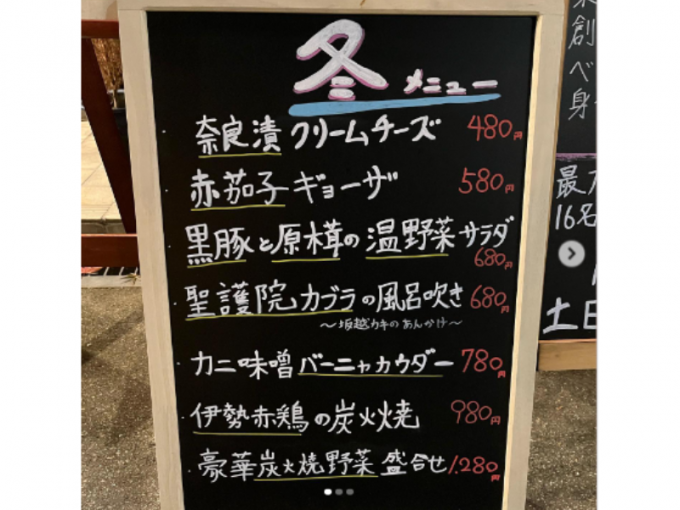 冬メニュー
・奈良漬クリームチーズ 480円
・赤茄子ギョーザ 580円
・黒豚と原茸の温野菜サラダ
680円
・聖護院カブラの風呂吹き 680円
〜坂越カキのあんかけ〜
・カニ味噌バーニャカウダー 780円
・伊勢赤鶏の炭火焼 980円
・豪華炭火焼野菜盛合せ 1.280円
創
べ
身
16名
土日